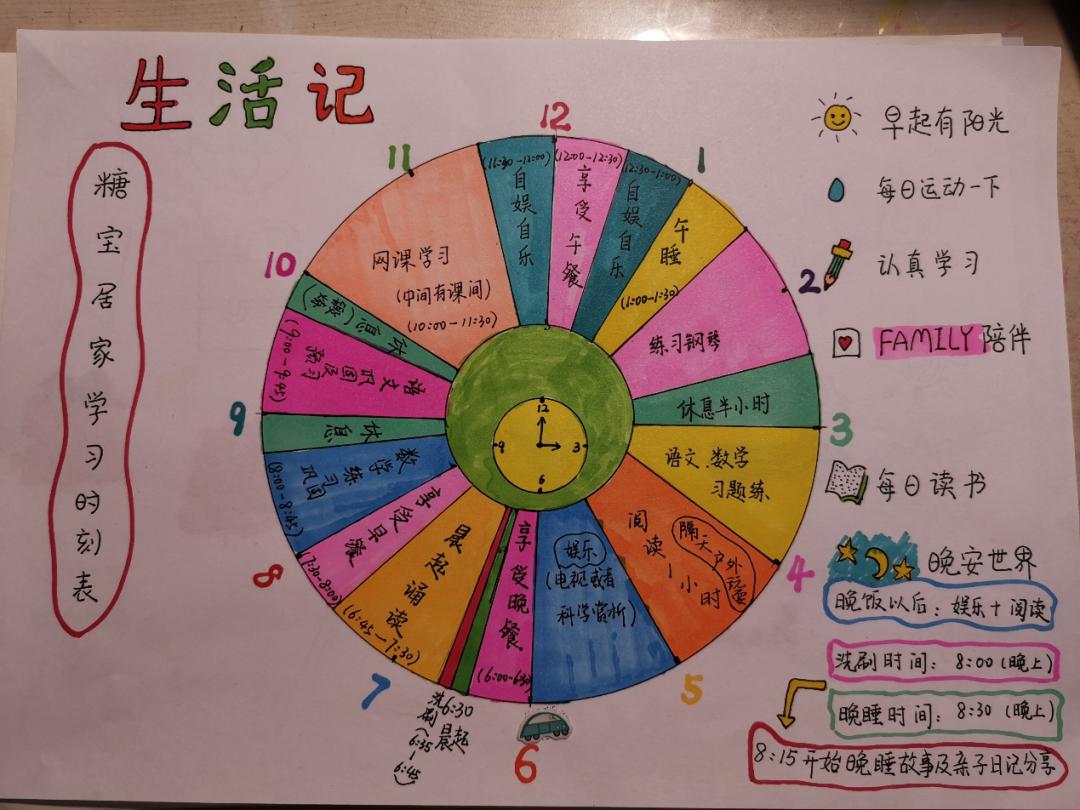 生活记
糖宝居家学习时刻表
12
(12:00-12:30)
享受午餐
(12:30-1:00)
自娱自乐
1
午睡
(1:00-1:30)
2
练习钢琴
休息半小时
3
语文、数学
习题练
4
阅读1小时
隔天户外玩耍
5
娱乐
(电视或者
科学赏析)
6
享受晚餐
(6:00-6:30)
6:30
晨起
洗刷
(6:35-6:45)
7
晨起诵读
(6:45-7:30)
8
享受早餐
(7:30-8:00)
数学
练习
巩固
(8:00-8:45)
休息
9
语文巩固及
预习
(9:00-9:45)
休息
10
网课学习
(中间有课间)
(10:00-11:30)
11
(11:30-12:00)
自娱自乐
12
3
6
9
早起有阳光
每日运动一下
认真学习
FAMILY陪伴
每日读书
晚安世界
晚饭以后：娱乐+阅读
洗刷时间：8:00(晚上)
晚睡时间：8:30(晚上)
8:15开始晚睡故事及亲子日记分享